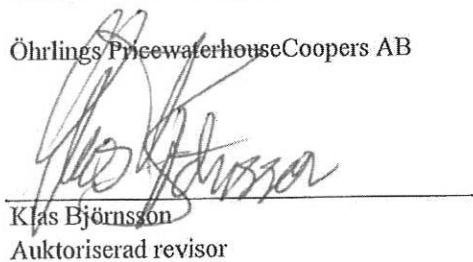 Öhrlings PricewaterhouseCoopers AB
Klas Björnsson
Auktoriserad revisor